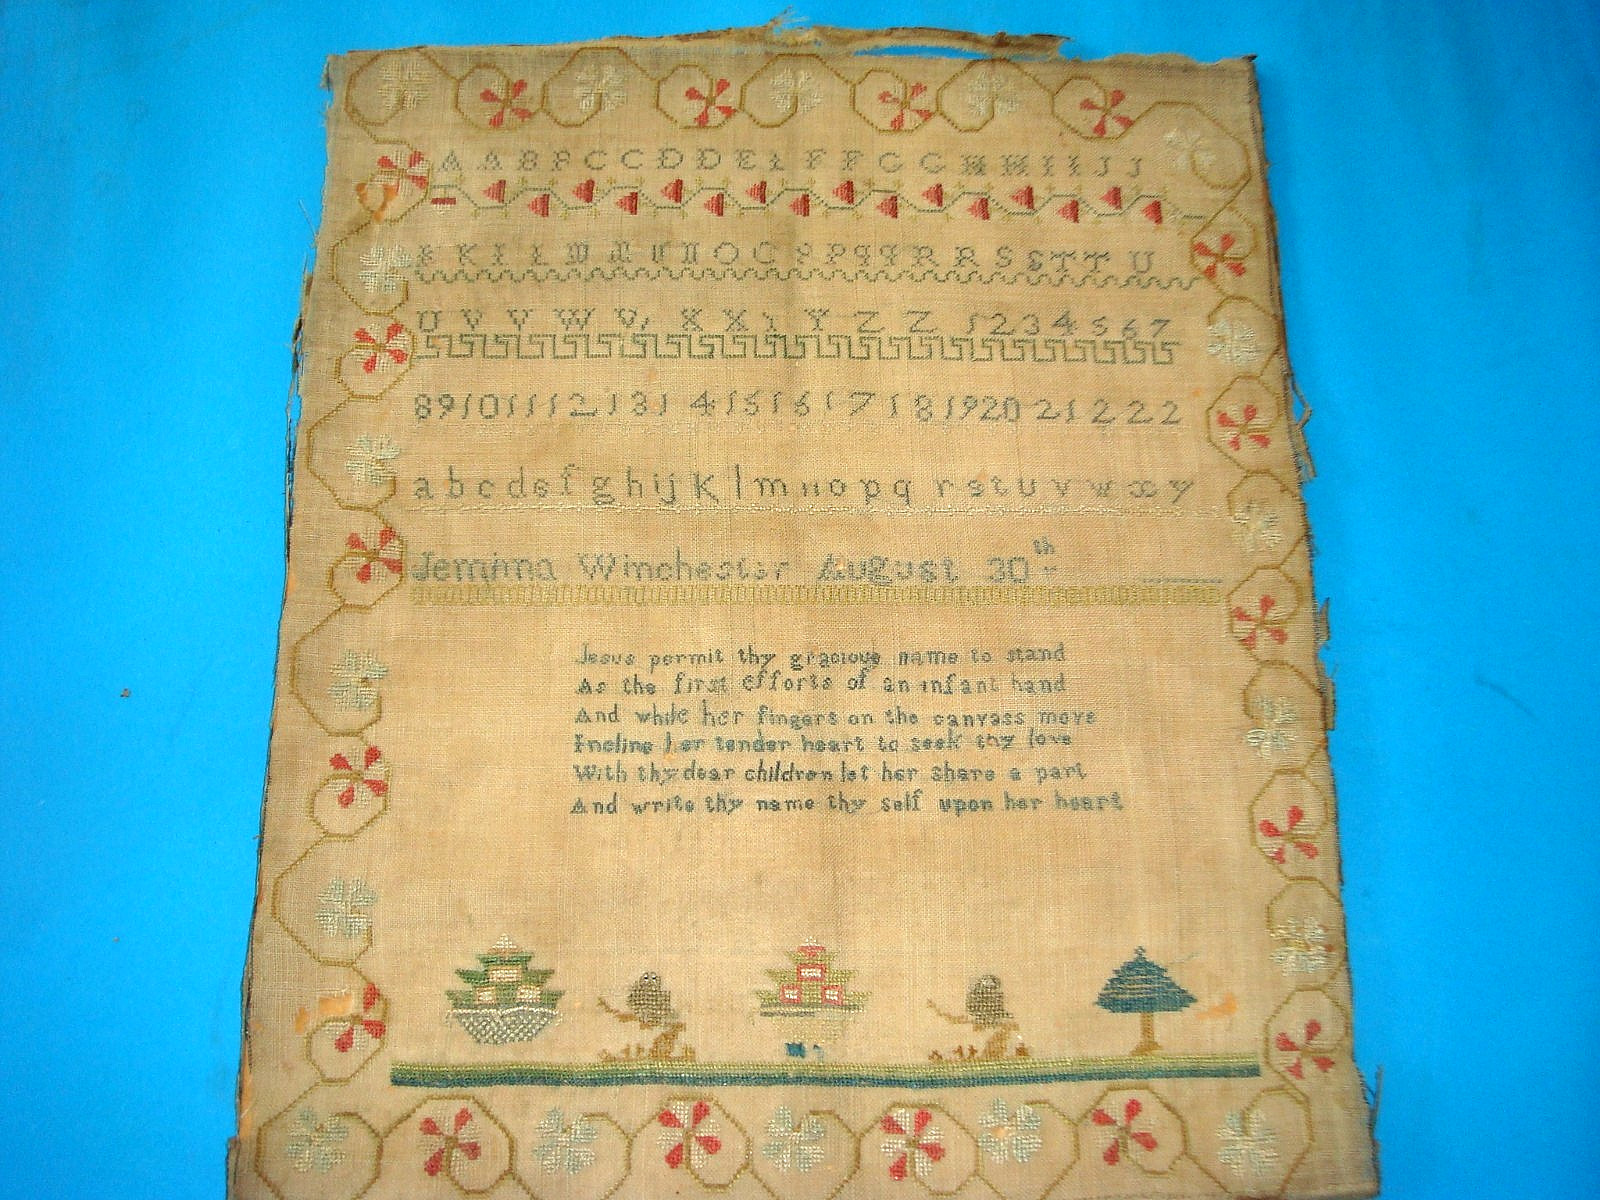 A A B B C C D D E E F F G G H H I I J J
K K L L M M N N O O P P q q R R S S T T U
U V V W W X X Y Y Z Z 1 2 3 4 5 6 7
8 9 10 11 12 13 14 15 16 17 18 19 20 21 22 2
a b c d e f g h i j k l m n o p q r s t u v w x y
Jemima Winchester August 30th
Jesus permit thy gracious name to stand
As the first efforts of an infant hand
And while her fingers on the canvass move
Incline her tender heart to seek thy love
With thy dear children let her share a part
And write thy name thy self upon her heart